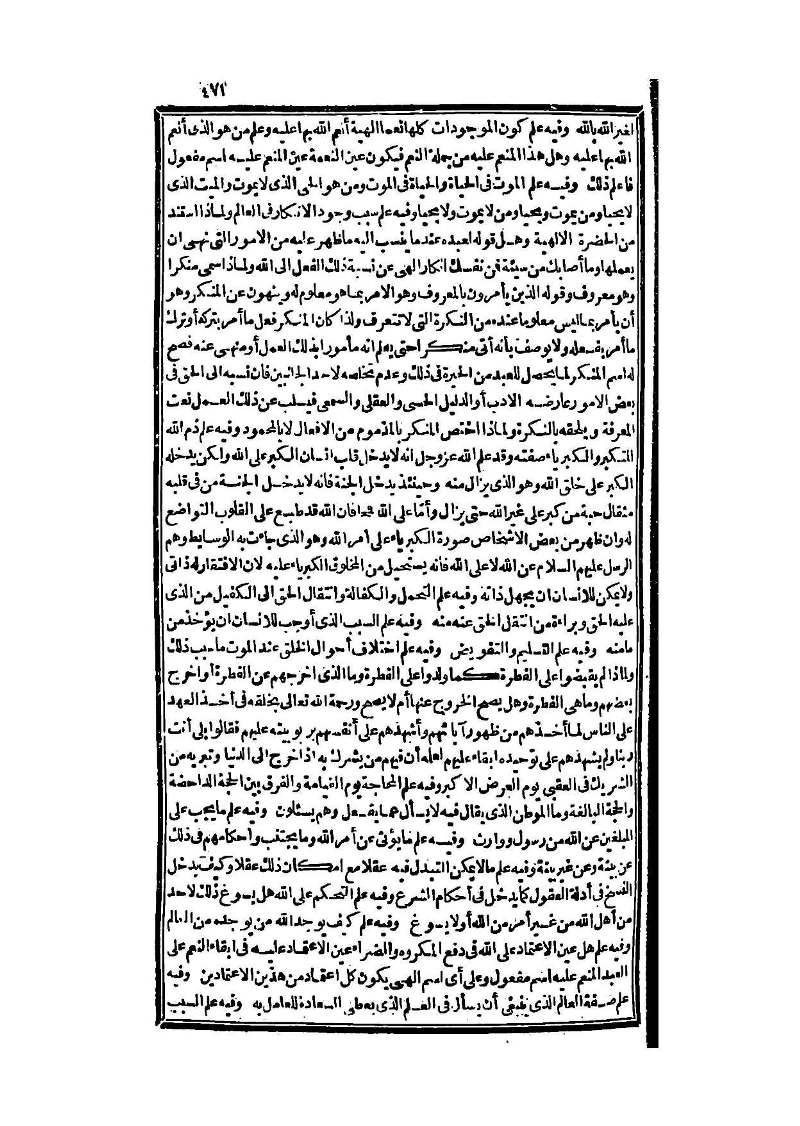 ٤٧١
لغير الله بالله وفيه علم كون الموجودات كلها نعما الهية أنعم الله بها عليه وعلم من هو الذى أنعم
الله بها عليه وهل هذا المنعم عليه من جملة النعم فيكون عين النعمة عين المنعم عليه اسم مفعول
فاعلم ذلك وفيه علم الموت فى الحياة والحياة فى الموت ومن هو الحى الذى لا يموت والميت الذى
لا يحيا ومن يموت ويحيا ومن لا يموت ولا يحيا وفيه علم سبب وجود الانكار فى العالم ولماذا استند
من الحضرة الالهية وهل قوله لعبده عند ما ينسب اليه ما ظهر عليه من الامور التى نهى ان
يعملها وما أصابك من سيئة فمن نفسك انكار الهى عن نسبة ذلك الفعل الى الله ولماذا سمى منكرا
وهو معروف وقوله الذين يأمرون بالمعروف وهو الامر بما هو معلوم له وينهون عن المنكر وهو
أن يأمر بما ليس معلوما عنده من النكرة التى لا تتعرف ولذا كان المنكر فعل ما أمر بتركه أو ترك
ما أمر بفعله ولا يوصف بأنه أتى منكرا حتى يعلم انه مأمور بذلك العمل أو منهى عنه فصح
له اسم المنكر لما يحصل للعبد من الحيرة فى ذلك وعدم تخلصه لاحد الجانبين فان نسبه الى الحق فى
بعض الامور عارضه الادب أو الدليل الحسى والعقلى والسمعى فيسلب عن ذلك العمل نعت
المعرفة ويلحقه بالنكرة ولماذا اختص المنكر بالمذموم من الافعال لا بالمحمود وفيه علم ذم الله
التكبر والكبرياء صفته وقد علم الله عز وجل انه لا يدخل قلب انسان الكبر على الله ولكن يدخله
الكبر على خلق الله وهو الذى يزال منه وحينئذ يدخل الجنة فانه لا يدخل الجنة من فى قلبه
مثقال حبة من كبر على غير الله حتى يزال وأما على الله فمحال فان الله قد طبع على القلوب التواضع
له وان ظهر من بعض الاشخاص صورة الكبرياء على أمر الله وهو الذى جاءت به الوسايط وهم
الرسل عليهم السلام عن الله لا على الله فانه يستحيل من المخلوق الكبرياء عليه لان الافتقار له ذاتى
ولا يمكن للانسان ان يجهل ذاته وفيه علم التحمل والكفالة وانتقال الحق الى الكفيل من الذى
عليه الحق وبراءة من انتقل الحق عنه منه وفيه علم السبب الذى أوجب للانسان ان يؤخذ من
مامنه وفيه علم التسليم والتفويض وفيه علم اختلاف أحوال الخلق عند الموت ما سبب ذلك
ولماذا لم يقبضوا على الفطرة كما ولدوا على الفطرة وما الذى اخرجهم عن الفطرة أو اخرج
بعضهم وما هى الفطرة وهل يصح الخروج عنها أم لا يصح ورحمة الله تعالى بخلقه فى أخذ العهد
على الناس لما أخذهم من ظهور آبائهم وأشهدهم على أنفسهم بربوبيته عليهم فقالوا بلى أنت
ربنا ولم يشهدهم على توحيده ابقاء عليهم لعلمه أن فيهم من يشرك به اذا خرج الى الدنيا وتبريه من
الشريك فى العقبى يوم العرض الاكبر وفيه علم المحاجة يوم القيامة والفرق بين الحجة الداحضة
والحجة البالغة وما الموطن الذى يقال فيه لا يسأل عما يفعل وهم يسئلون وفيه علم ما يجب على
المبلغين عن الله من رسول ووارث وفيه علم ما يؤتى عن أمر الله وما يجتنب وأحكامهم فى ذلك
عن بينة وعن غير بينة وفيه علم ما لا يمكن التبدل فيه عقلا مع امكان ذلك عقلا وكيف يدخل
النسخ فى أدلة العقول كما يدخل فى أحكام الشرع وفيه علم التحكم على الله هل يسوغ ذلك لاحد
من أهل الله من غير أمر من الله أو لا يسوغ وفيه علم كيف يوجد الله من يوجده من العالم
وفيه علم هل عين الاعتماد على الله فى دفع المكروه والضراء عين الاعتماد عليه فى ابقاء النعم على
العبد المنعم عليه اسم مفعول وعلى أى اسم الهى يكون كل اعتماد من هذين الاعتمادين وفيه
علم صفة العالم الذى ينبغى أن يسأل فى العلم الذى يعطى السعادة للعامل به وفيه علم السبب